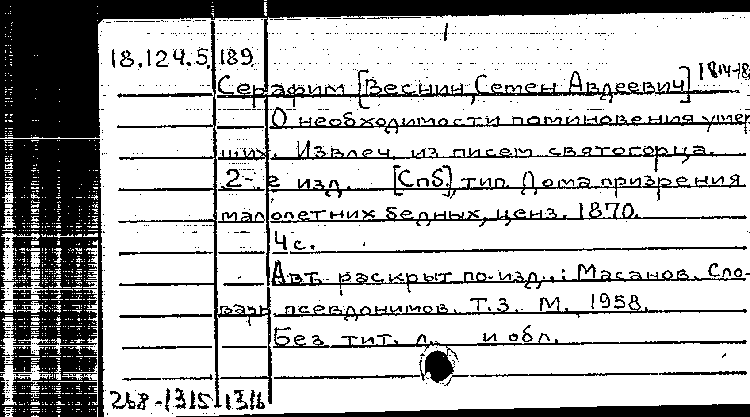 18.124.5.189
Серафим [Веснин, Семен Авдеевич] 1814-18
О необходимости поминовения умер
ших. Извлеч. из писем святогорца.
2-е изд. [Спб], тип. Дома призрения
малолетних бедных, ценз. 1870.
4 с.
Авт. раскрыт по изд.: Масанов. Сло-
варь псевдонимов. Т.3. М., 1958.
Без тит. л. и обл.
268-1315 1316